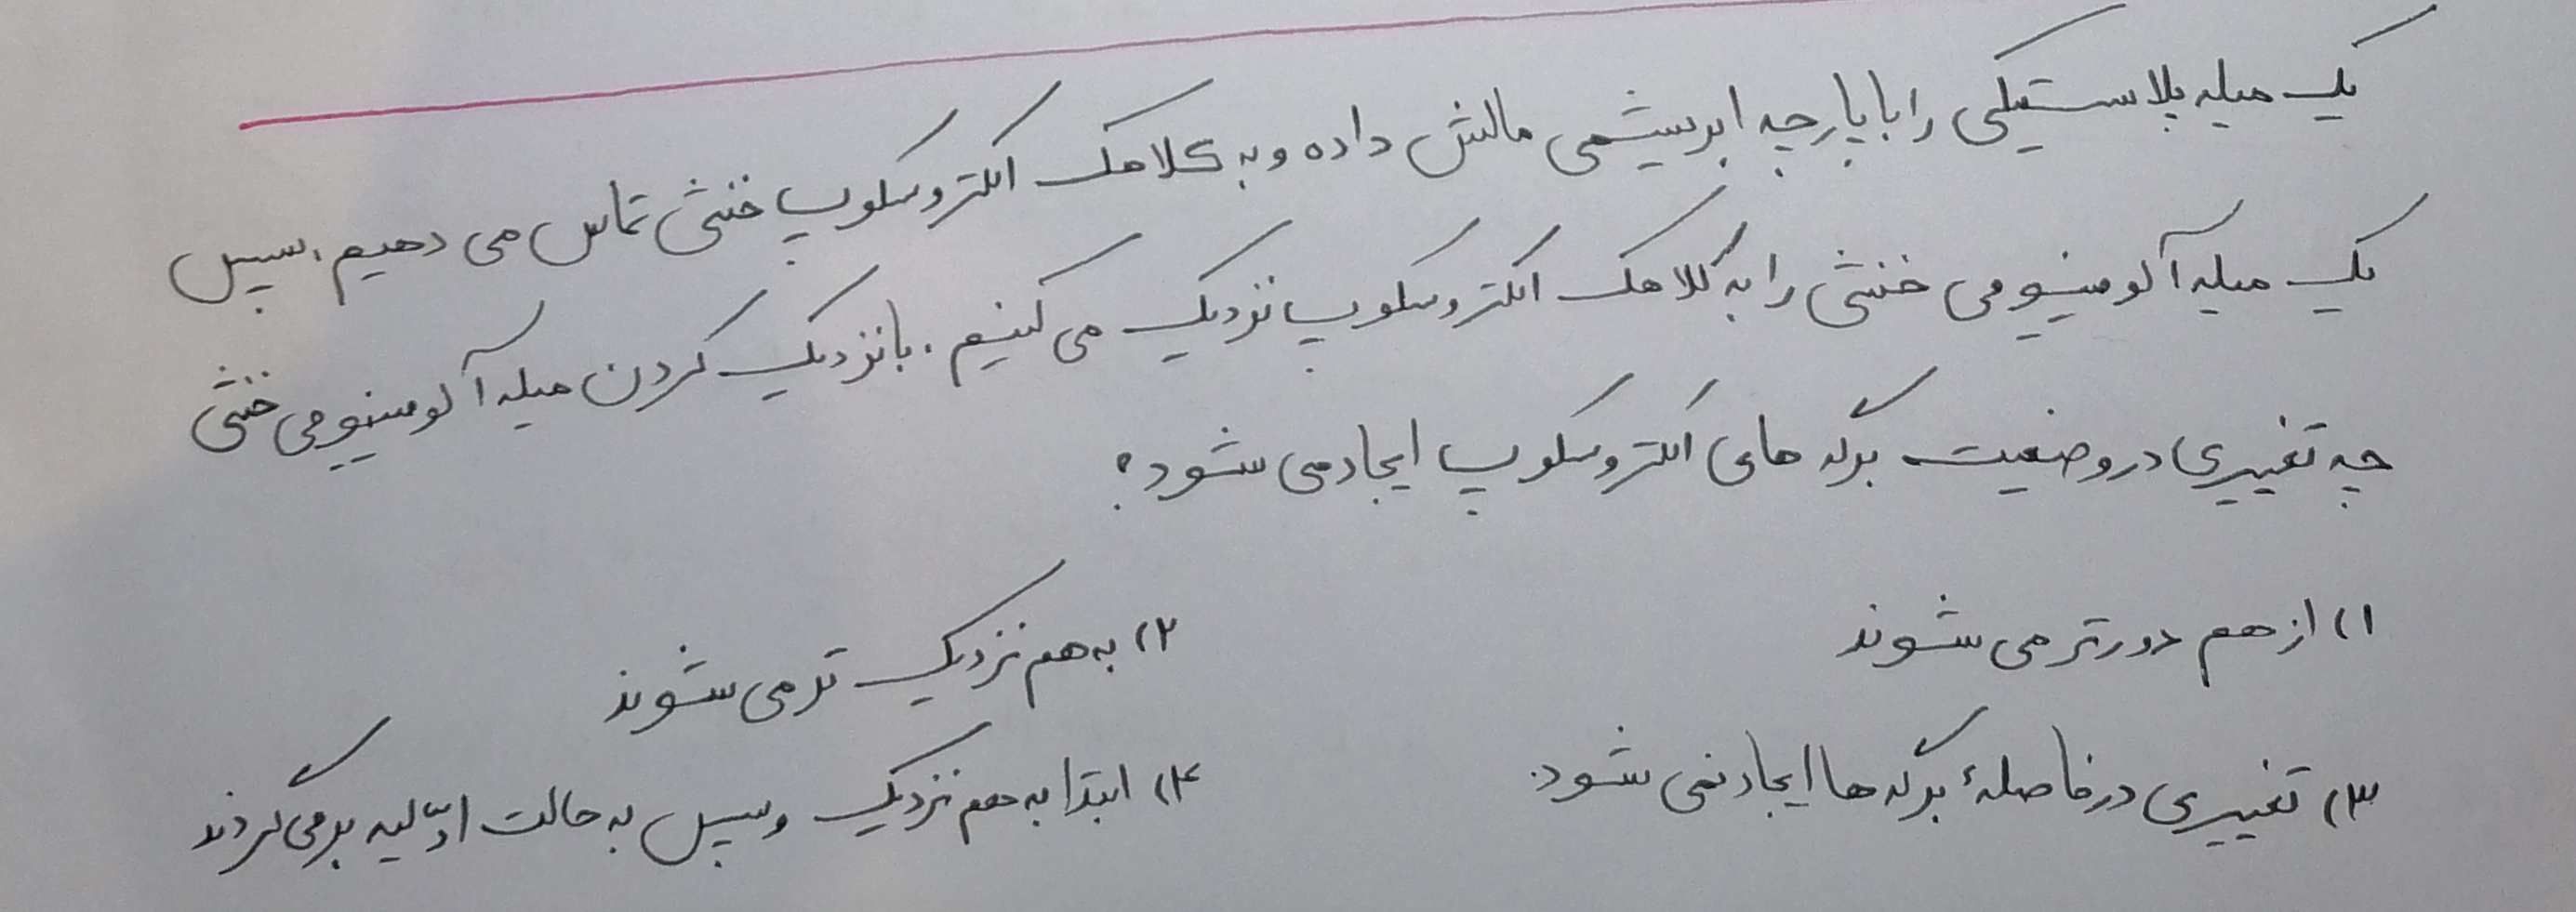 یک میله پلاستیکی را با پارچه ابریشمی مالش داده و به کلاهک الکتروسکوپ خنثی تماس می دهیم، سپس
یک میله آلومینیومی خنثی را به کلاهک الکتروسکوپ نزدیک می کنیم. با نزدیک کردن میله آلومینیومی خنثی
چه تغییری در وضعیت برگه های الکتروسکوپ ایجاد می شود؟
۱) از هم دورتر می شوند
۲) به هم نزدیک تر می شوند
۳) تغییری در فاصلهٔ برگه ها ایجاد نمی شود.
۴) ابتدا به هم نزدیک و سپس به حالت اوّلیه برمی گردند